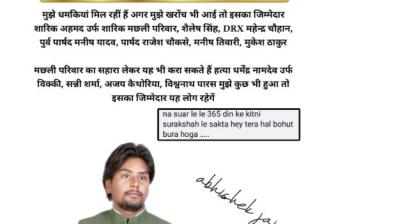 मुझे धमकियां मिल रहीं हैं अगर मुझे खरोंच भी आई तो इसका जिम्मेदार
शारिक अहमद उर्फ शारिक मछली परिवार, शैलेष सिंह, DRX महेन्द्र चौहान,
पुर्व पार्षद मनीष यादव, पार्षद राजेश चौकसे, मनीष तिवारी, मुकेश ठाकुर
मछली परिवार का सहारा लेकर यह भी करा सकते हैं हत्या धर्मेंद्र नामदेव उर्फ
विक्की, सन्नी शर्मा, अजय कैथोरिया, विश्वनाथ पारस मुझे कुछ भी हुआ तो
इसका जिम्मेदार यह लोग रहेगें
na suar le le 365 din ke kitni
surakshah le sakta hey tera hal bohut
bura hoga .....
abhishek